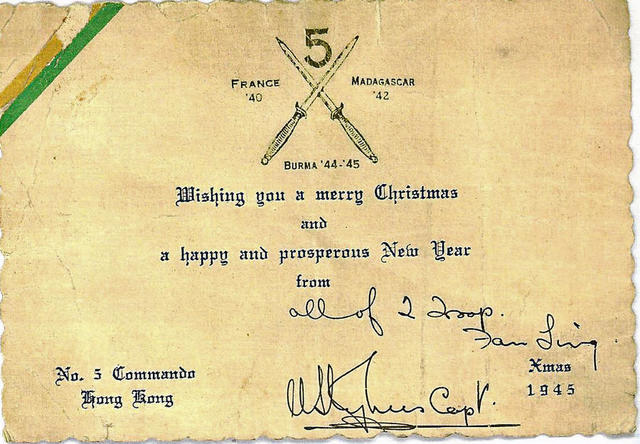 5
FRANCE '40
MADAGASCAR '42
BURMA '44-'45
Wishing you a merry Christmas
and
a happy and prosperous New Year
from
all of 2 Troop.
Fan Ling
No. 5 Commando
Hong Kong
Capt.
Xmas
1945